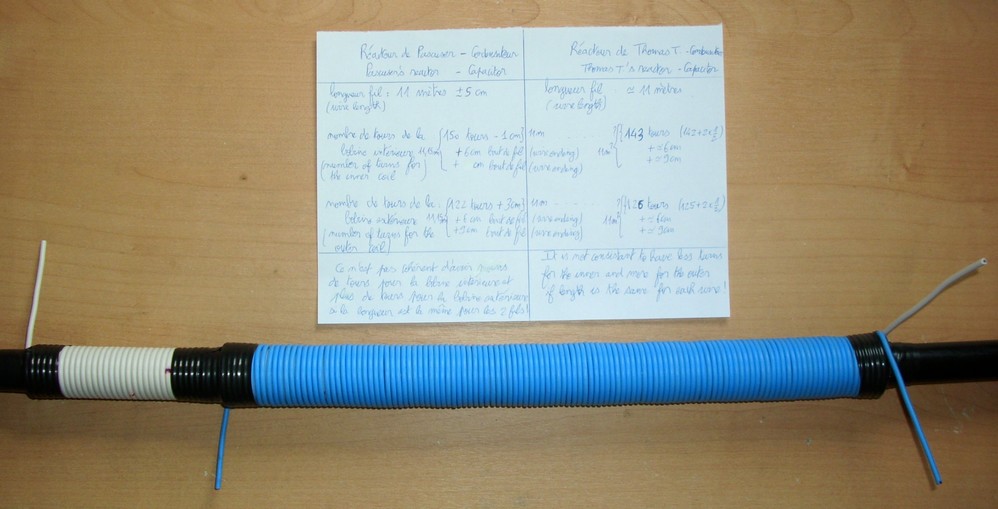 Réacteur de Pascuser - Condensateur
Pascuser's reactor - Capacitor
longueur fil : 11 mètres ± 5 cm
(wire length)
nombre de tours de la { 150 tours - 1 cm } 11m
bobine intérieure + 6 cm bout de fil (wire ending)
(number of turns for + cm bout de fil (wire ending)
the inner coil)
nombre de tours de la { 122 tours + 3 cm } 11m
bobine extérieure bout de fil (wire ending)
(number of turns for the bout de fil (wire ending)
outer coil)
Ce n'est pas cohérent d'avoir moins
de tours pour la bobine intérieure et
plus de tours pour la bobine extérieure
si la longueur est la même pour les 2 fils !
Réacteur de Thomas T. - Condensateur
Thomas T.'s reactor - Capacitor
longueur fil ≃ 11 mètres
(wire length)
143 tours
+ ≃ 6 cm
+ ≃ 9 cm
126 tours
+ ≃ 6 cm
+ ≃ 9 cm
It is not consistent to have less turns
for the inner and more for the outer
if length is the same for each wire !